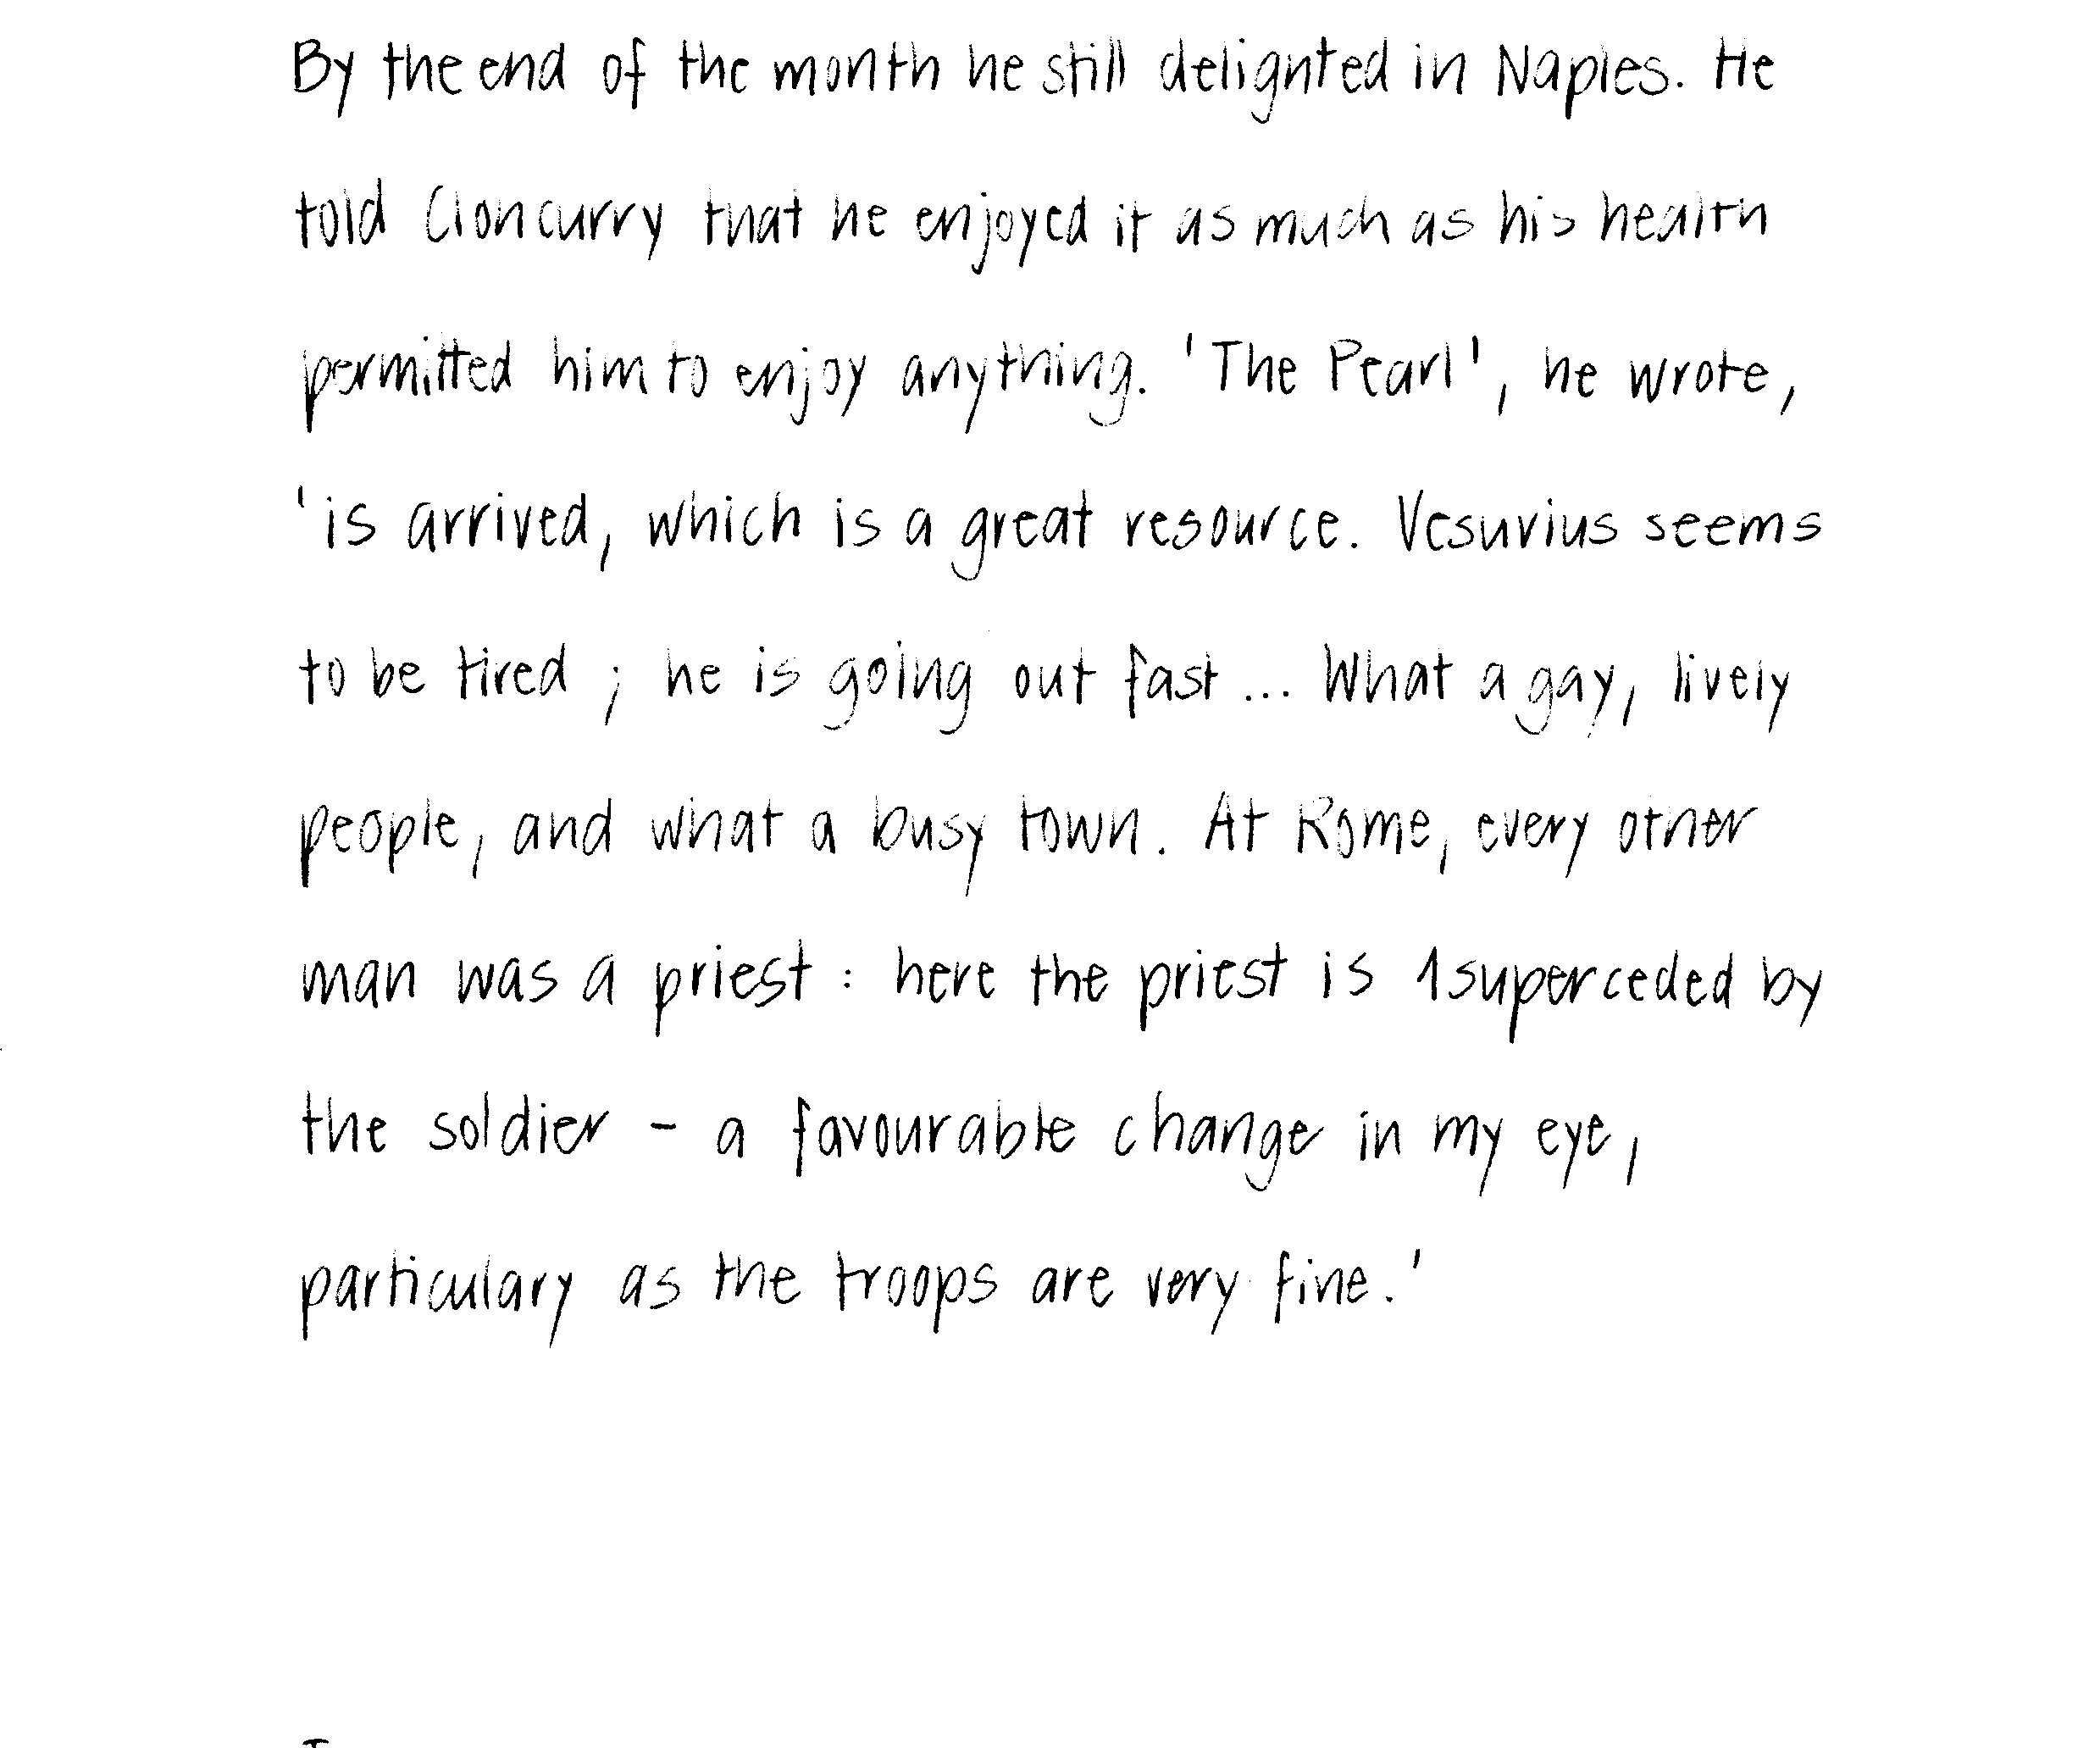 By the end of the month he still delighted in Naples. He
told Cloncurry that he enjoyed it as much as his health
permitted him to enjoy anything. 'The Pearl', he wrote,
'is arrived, which is a great resource. Vesuvius seems
to be tired ; he is going out fast ... What a gay, lively
people, and what a busy town. At Rome, every other
man was a priest : here the priest is 1superceded by
the soldier - a favourable change in my eye,
particulary as the troops are very fine.'